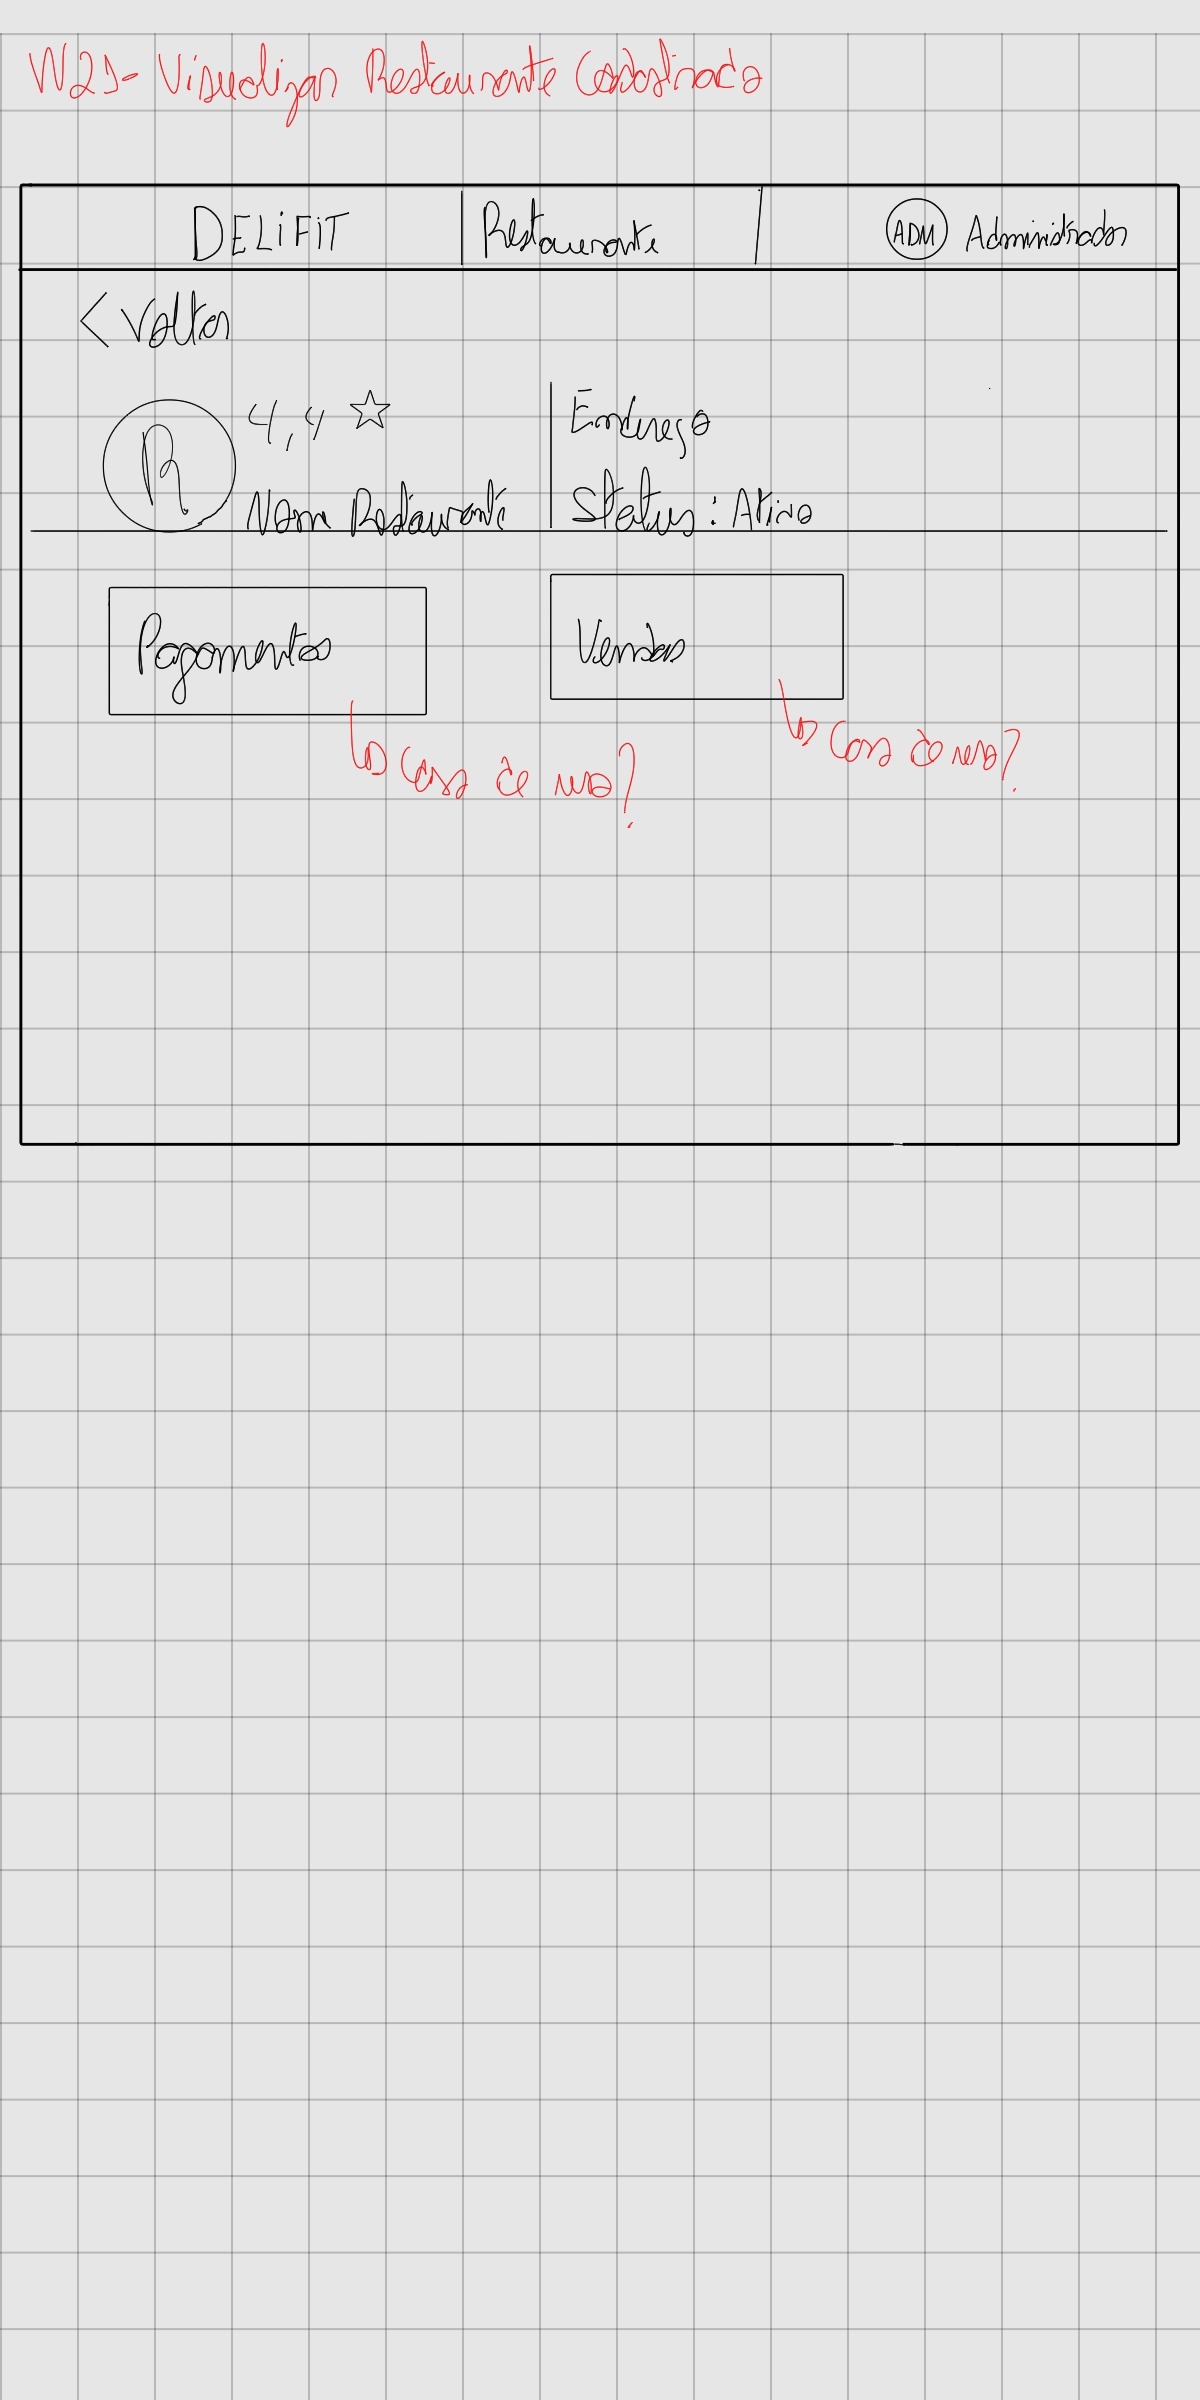 W21- Visualizar Restaurante Cadastrado
DELiFiT | Restaurante | ADM Administrador
< Voltar
4,4 ☆
R
Endereço
Nome Restaurante
Status: Ativo
Pagamentos
Vendas
↳ Caso de uso?
↳ Caso de uso?